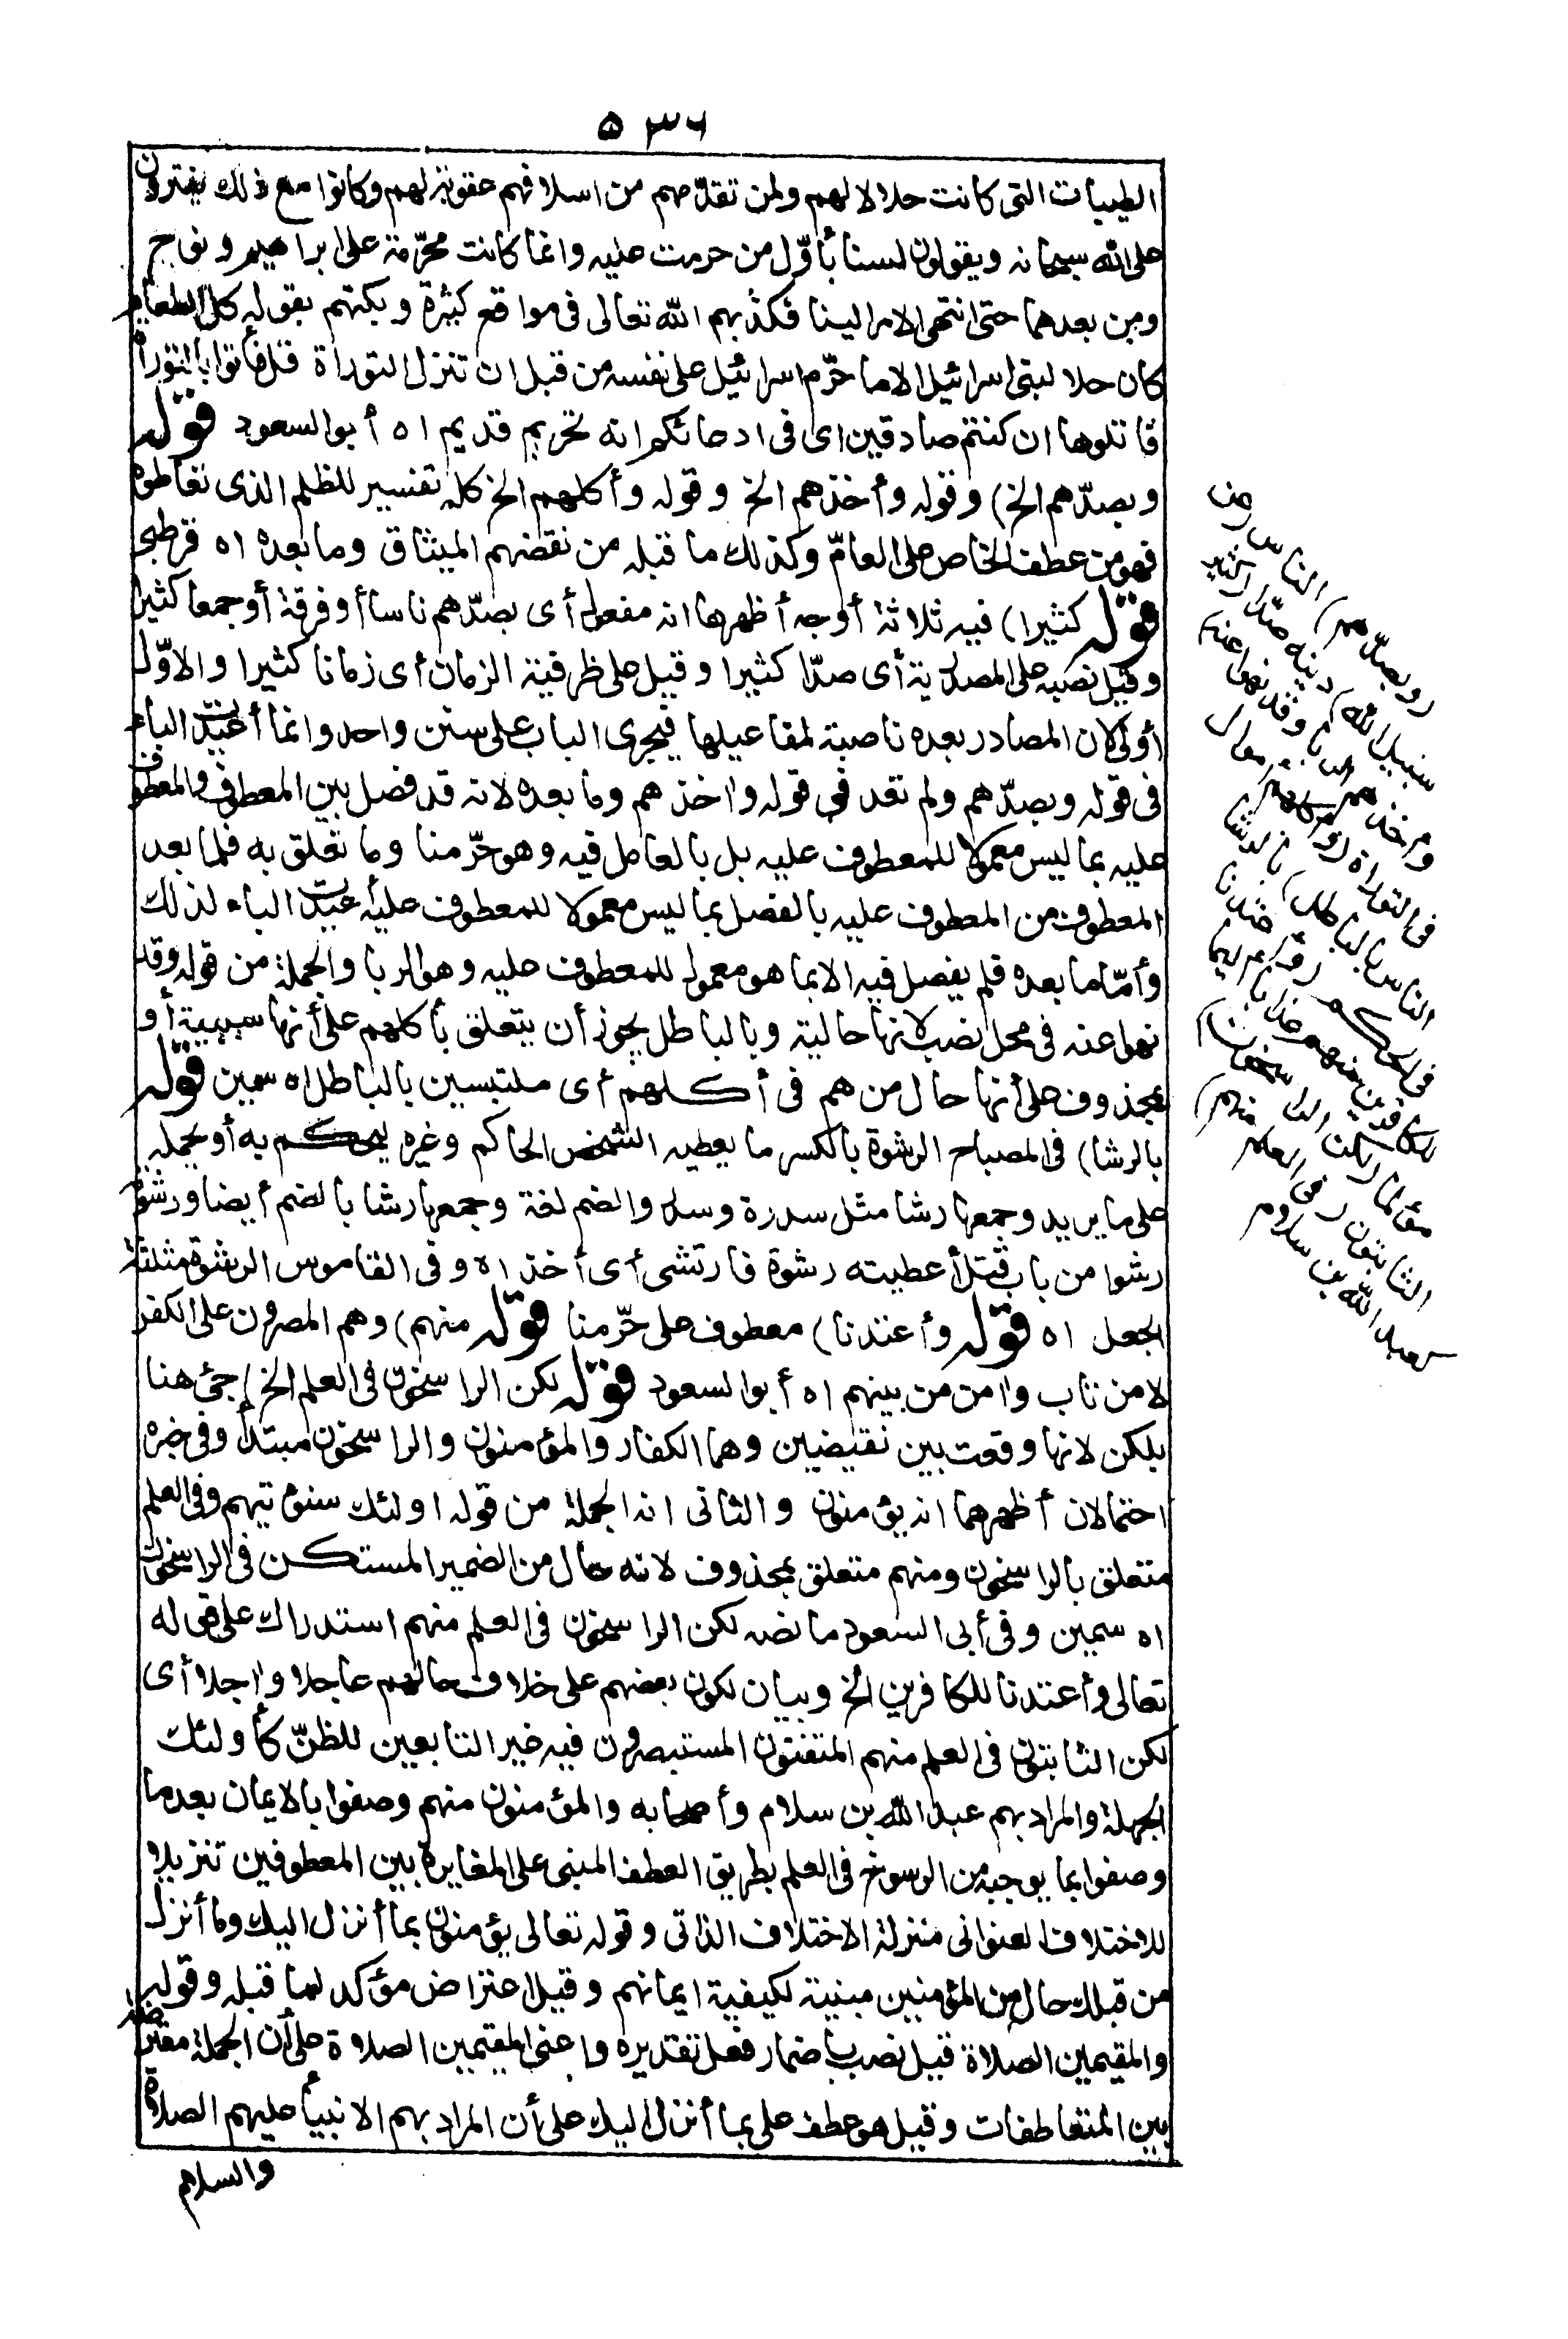 ٥٣٦
الطيبات التى كانت حلالا لهم ولمن تقدّمهم من اسلافهم عقوبة لهم وكانوا مع ذلك يفترون
على الله سبحانه ويقولون لسنا بأوّل من حرمت عليه وانما كانت محرّمة على ابراهيم ونوح
ومن بعدهما حتى انتهى الامر الينا فكذبهم الله تعالى فى مواقع كثيرة وبكتهم بقوله كل الطعام
كان حلا لبنى اسرائيل الا ما حرّم اسرائيل على نفسه من قبل ان تنزل التوراة قل فأتوا بالتوراة
فاتلوها ان كنتم صادقين اى فى ادعائكم انه تحريم قديم اه أبو السعود قوله
وبصدّهم الخ) وقوله وأخذهم الخ وقوله وأكلهم الخ كله تفسير للظلم الذى تعاطوه
فهو من عطف الخاص على العامّ وكذلك ما قبله من نقضهم الميثاق وما بعده اه قرطبى
قوله كثيرا) فيه ثلاثة أوجه أظهرها انه مفعول أى بصدّهم ناسا أو فرقة أو جمعا كثيرا
وقيل نصبه على المصدرية أى صدّا كثيرا وقيل على ظرفية الزمان أى زمانا كثيرا والاوّل
أولى لان المصادر بعده ناصبة لمفاعيلها فيجرى الباب على سنن واحد وانما أعيدت الباء
فى قوله وبصدّهم ولم تعد فى قوله واخذهم وما بعده لانه قد فصل بين المعطوف والمعطوف
عليه بما ليس معمولا للمعطوف عليه بل بالعامل فيه وهو حرّمنا وما تعلق به فلما بعد
المعطوف من المعطوف عليه بالفصل بما ليس معمولا للمعطوف عليه أعيدت الباء لذلك
وأمّا ما بعده فلم يفصل فيه الا بما هو معمول للمعطوف عليه وهو الربا والجملة من قوله وقد
نهوا عنه فى محل نصب لانها حالية وبالباطل يجوز أن يتعلق بأكلهم على أنها سببية أو
بمحذوف على أنها حال من هم فى أكلهم أى ملتبسين بالباطل اه سمين قوله
بالرشا) فى المصباح الرشوة بالكسر ما يعطيه الشخص الحاكم وغيره ليحكم به أو يحمله
على ما يريد وجمعها رشا مثل سدرة وسدر والضم لغة وجمعها رشا بالضم أيضا ورشوته
رشوا من باب قتل أعطيته رشوة فارتشى أى أخذ اه وفى القاموس الرشوة مثلثة
الجعل اه قوله وأعتدنا) معطوف على حرّمنا قوله منهم) وهم المصرون على الكفر
لا من تاب وامن من بينهم اه أبو السعود قوله لكن الراسخون فى العلم الخ) جىء هنا
بلكن لانها وقعت بين نقيضين وهما الكفار والمؤمنون والراسخون مبتدأ وفى خبره
احتمالان أظهرهما انه يؤمنون والثانى انه الجملة من قوله اولئك سنؤتيهم وفى العلم
متعلق بالراسخون ومنهم متعلق بمحذوف لانه حال من الضمير المستكن فى الراسخون
اه سمين وفى أبى السعود ما نصه لكن الراسخون فى العلم منهم استدراك على قوله
تعالى وأعتدنا للكافرين الخ وبيان لكون بعضهم على خلاف حالهم عاجلا واجلا أى
لكن الثابتون فى العلم منهم المتقنون المستبصرون فيه غير التابعين للظنّ كأولئك
الجهلة والمراد بهم عبد الله بن سلام وأصحابه والمؤمنون منهم وصفوا بالايمان بعد ما
وصفوا بما يوجبه من الرسوخ فى العلم بطريق العطف المبنى على المغايرة بين المعطوفين تنزيلا
للاختلاف العنوانى منزلة الاختلاف الذاتى وقوله تعالى يؤمنون بما أنزل اليك وما أنزل
من قبلك حال من المؤمنين مبينة لكيفية ايمانهم وقيل اعتراض مؤكد لما قبله وقوله
والمقيمين الصلاة قيل نصب باضمار فعل تقديره واعنى المقيمين الصلاة على أن الجملة معترضة
بين المتعاطفات وقيل هو عطف على بما أنزل اليك على أن المراد بهم الانبياء عليهم الصلاة
والسلام
(وبصدّهم) الناس (عن
سبيل الله) دينه صدّا (كثيرا
وأخذهم الربا وقد نهوا عنه)
فى التوراة (وأكلهم أموال
الناس بالباطل) بالرشا
فى الحكم (وأعتدنا
للكافرين منهم عذابا أليما)
مؤلما (لكن الراسخون)
الثابتون (فى العلم منهم)
كعبد الله بن سلام